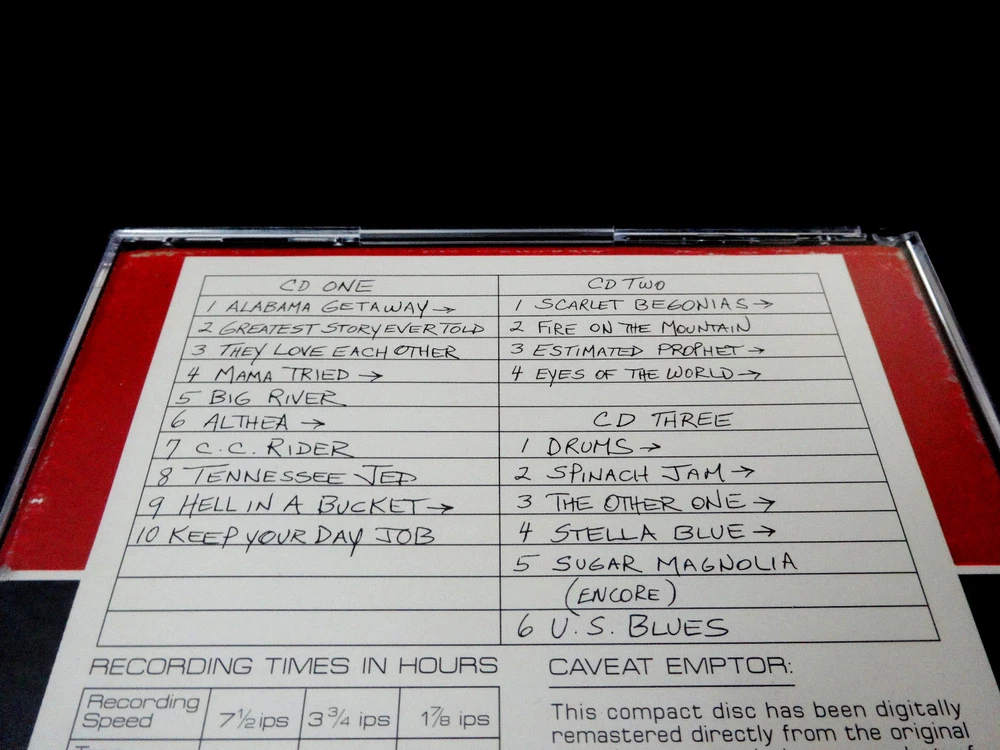 CD ONE
1 ALABAMA GETAWAY →
2 GREATEST STORY EVER TOLD
3 THEY LOVE EACH OTHER
4 MAMA TRIED →
5 BIG RIVER
6 ALTHEA →
7 C.C. RIDER
8 TENNESSEE JED
9 HELL IN A BUCKET →
10 KEEP YOUR DAY JOB
CD TWO
1 SCARLET BEGONIAS →
2 FIRE ON THE MOUNTAIN
3 ESTIMATED PROPHET →
4 EYES OF THE WORLD →
CD THREE
1 DRUMS →
2 SPINACH JAM →
3 THE OTHER ONE →
4 STELLA BLUE →
5 SUGAR MAGNOLIA
(ENCORE)
6 U.S. BLUES
RECORDING TIMES IN HOURS
Recording
Speed
7½ ips
3¾ ips
1⅞ ips
CAVEAT EMPTOR:
This compact disc has been digitally
remastered directly from the original